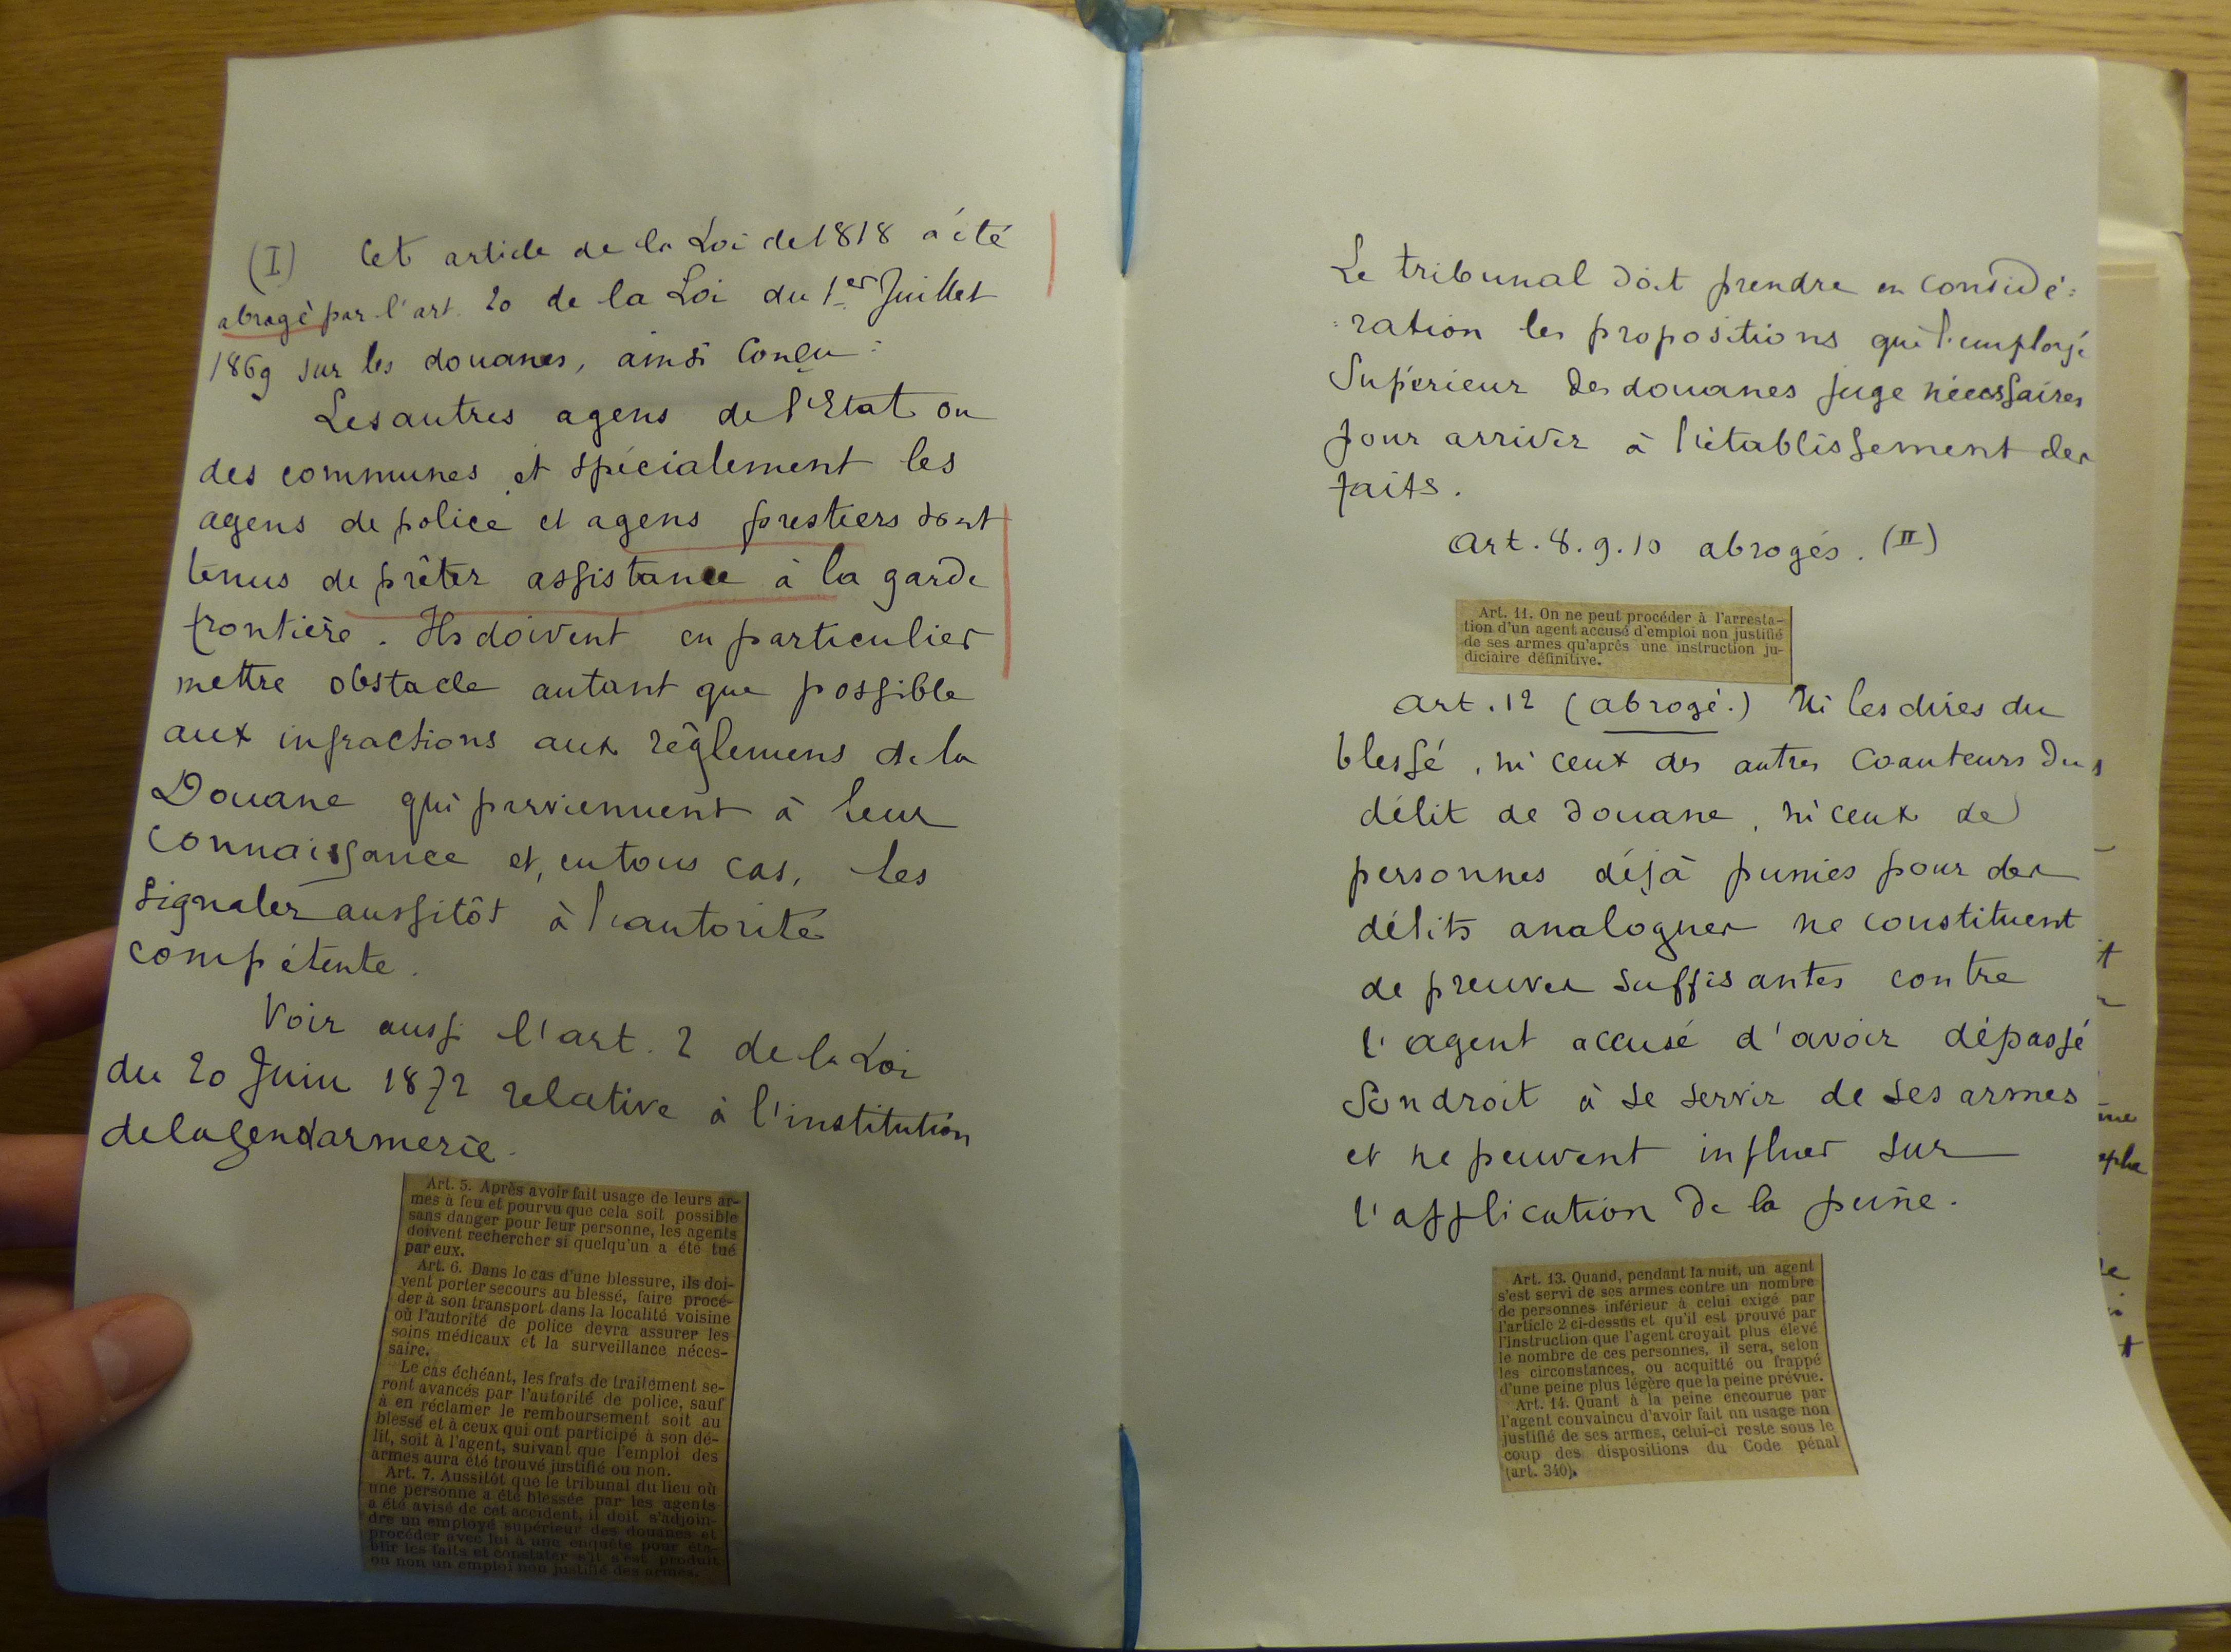 (I) Cet article de la Loi de 1818 a été
abrogé par l'art. 20 de la Loi du 1er Juillet
1869 sur les douanes, ainsi conçu :
Les autres agens de l'Etat ou
des communes et spécialement les
agens de police et agens forestiers sont
tenus de prêter assistance à la garde
frontière. Ils doivent en particulier
mettre obstacle autant que possible
aux infractions aux règlemens de la
Douane qui parviennent à leur
connaissance et, en tous cas, les
signaler aussitôt à l'autorité
compétente.
Voir aussi l'art. 2 de la Loi
du 20 Juin 1872 relative à l'institution
de la gendarmerie.
Art. 5. Après avoir fait usage de leurs ar-
mes à feu et pourvu que cela soit possible
sans danger pour leur personne, les agents
doivent rechercher si quelqu'un a été tué
par eux.
Art. 6. Dans le cas d'une blessure, ils doi-
vent porter secours au blessé, faire procé-
der à son transport dans la localité voisine
où l'autorité de police devra assurer les
soins médicaux et la surveillance néces-
saire.
Le cas échéant, les frais de traitement se-
ront avancés par l'autorité de police, sauf
à en réclamer le remboursement soit au
blessé et à ceux qui ont participé à son dé-
lit, soit à l'agent, suivant que l'emploi des
armes aura été trouvé justifié ou non.
Art. 7. Aussitôt que le tribunal du lieu où
une personne a été blessée par les agents
a été avisé de cet accident, il doit s'adjoin-
dre un employé supérieur des douanes et
procéder avec lui à une enquête pour éta-
blir les faits et constater s'il s'est produit
ou non un emploi non justifié des armes.
Le tribunal doit prendre en considé:
:ration les propositions que l'employé
Supérieur des douanes juge nécessaires
pour arriver à l'établissement des
faits.
Art. 8. 9. 10 abrogés. (II)
Art. 11. On ne peut procéder à l'arresta-
tion d'un agent accusé d'emploi non justifié
de ses armes qu'après une instruction ju-
diciaire définitive.
Art. 12 (abrogé.) Ni les dires du
blessé, ni ceux des autres coauteurs du
délit de douane, ni ceux de
personnes déjà punies pour des
délits analogues ne constituent
de preuves suffisantes contre
l'agent accusé d'avoir dépassé
Son droit à se servir de ses armes
et ne peuvent influer sur
l'application de la peine.
Art. 13. Quand, pendant la nuit, un agent
s'est servi de ses armes contre un nombre
de personnes inférieur à celui exigé par
l'article 2 ci-dessus et qu'il est prouvé par
l'instruction que l'agent croyait plus élevé
le nombre de ces personnes, il sera, selon
les circonstances, ou acquitté ou frappé
d'une peine plus légère que la peine prévue.
Art. 14. Quant à la peine encourue par
l'agent convaincu d'avoir fait un usage non
justifié de ses armes, celui-ci reste sous le
coup des dispositions du Code pénal
(art. 340).